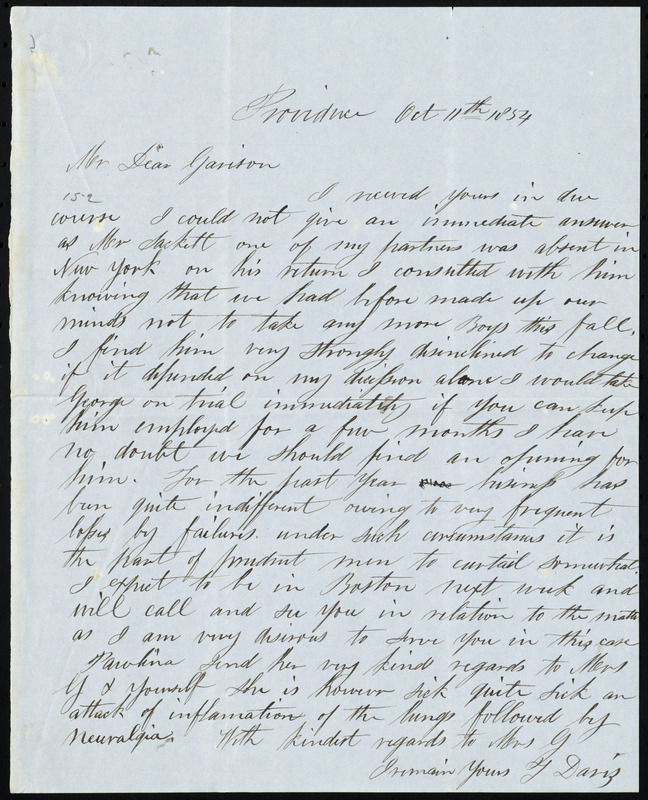 Providence Oct 11th 1854
My Dear Garrison
152
I received yours in due
course I could not give an immediate answer
as Mr Sackett one of my partners was absent in
New York on his return I consulted with him
knowing that we had before made up our
minds not to take any more Boys this fall.
I find him very strongly disinclined to change
if it depended on my decission alone I would take
George on trial immediately if you can keep
him employed for a few months I have
no doubt we should find an opening for
him. For the past Year business has
been quite indifferent owing to very frequent
losses by failures. under such circumstances it is
the part of prudent men to curtail somewhat.
I expect to be in Boston next week and
will call and see you in relation to the matter
as I am very desirous to serve you in this case
Paulina send her very kind regards to Mrs
G & yourself she is however sick quite sick an
attack of inflamation of the lungs followed by
Neuralgia. With kindest regards to Mrs G
I remain Yours T Davis